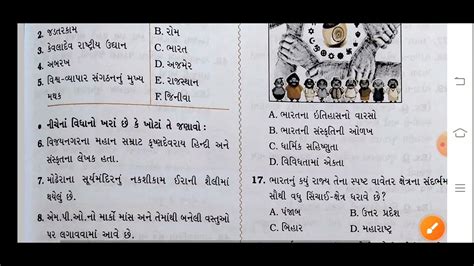 2. જડતરકામ
3. કેવલાદેવ રાષ્ટ્રીય ઉદ્યાન
4. અબરખ
5. વિશ્વ-વ્યાપાર સંગઠનનું મુખ્ય
મથક
B. રોમ
C. ભારત
D. અજમેર
E. રાજસ્થાન
F. જિનીવા
• નીચેનાં વિધાનો ખરાં છે કે ખોટાં તે જણાવો :
6. વિજયનગરના મહાન સમ્રાટ કૃષ્ણદેવરાય હિન્દી અને
સંસ્કૃતના લેખક હતા.
7. મોઢેરાના સૂર્યમંદિરનું નકશીકામ ઈરાની શૈલીમાં
થયેલું છે.
8. એમ.પી.ઓ.નો માર્કો માંસ અને તેમાંથી બનેલી વસ્તુઓ
પર લગાવવામાં આવે છે.
A. ભારતના ઇતિહાસનો વારસો
B. ભારતની સંસ્કૃતિની ઓળખ
C. ધાર્મિક સહિષ્ણુતા
D. વિવિધતામાં એકતા
17. ભારતનું કયું રાજ્ય તેના સ્પષ્ટ વાવેતર ક્ષેત્રના સંદર્ભમાં
સૌથી વધુ સિંચાઈ-ક્ષેત્ર ધરાવે છે?
A. પંજાબ
B. ઉત્તર પ્રદેશ
C. બિહાર
D. મહારાષ્ટ્ર